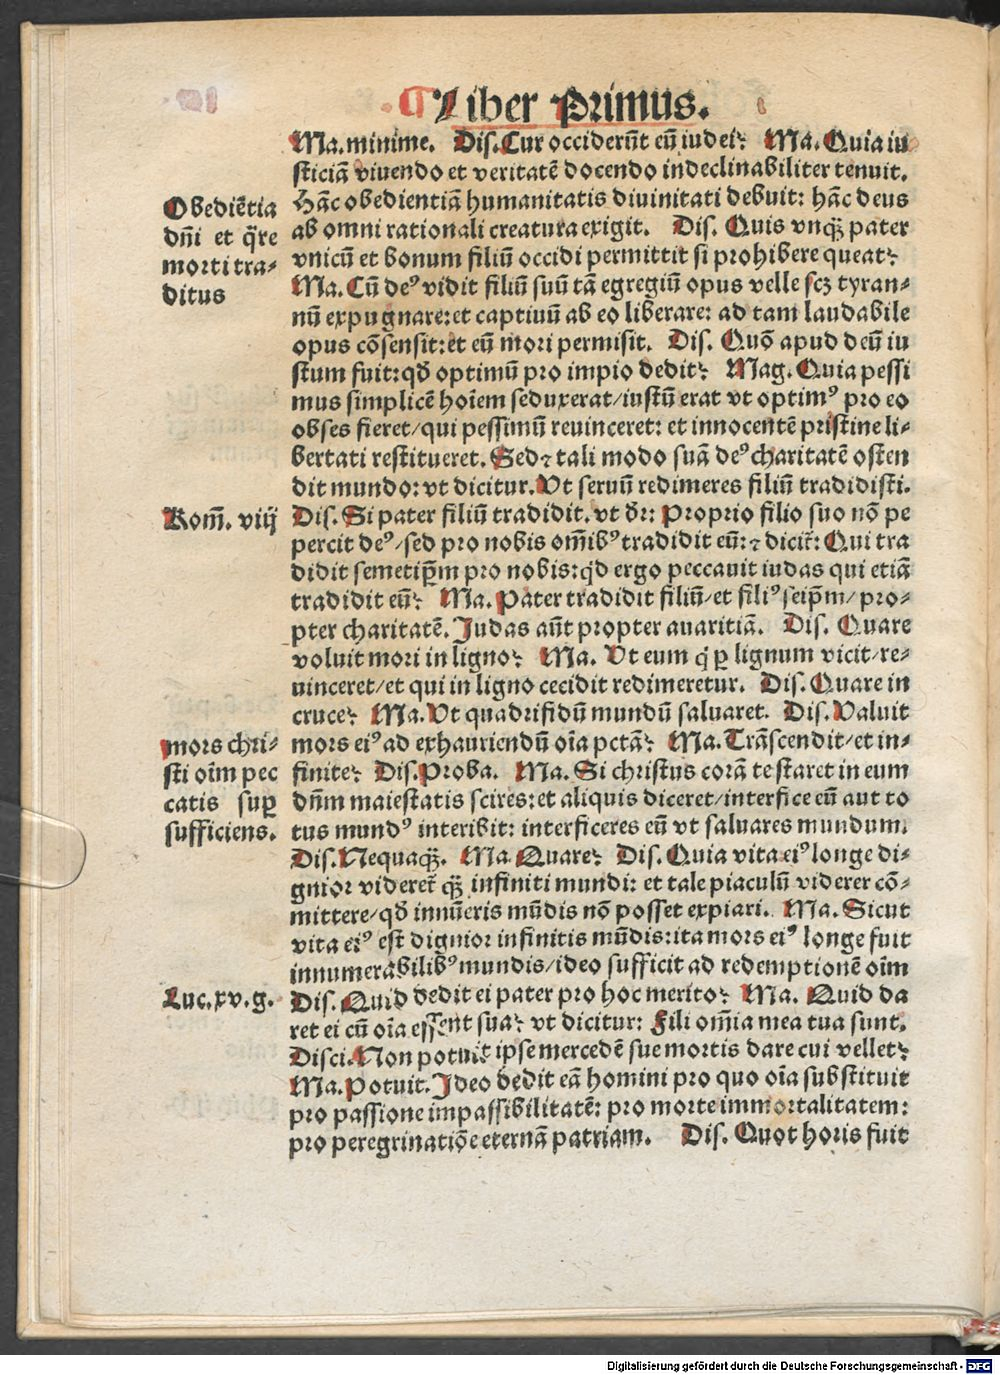 ¶ Liber Primus.
Ma. minime. Dis. Cur occiderūt eū iudei? Ma. Quia iu
sticiā viuendo et veritatē docendo indeclinabiliter tenuit.
Hāc obedientiā humanitatis diuinitati debuit: hāc deus
ab omni rationali creatura exigit. Dis. Quis vnqꝫ pater
vnicū et bonum filiū occidi permittit si prohibere queat?
Ma. Cū deꝰ vidit filiū suū tā egregiū opus velle scꝫ tyran-
nū expugnare: et captiuū ab eo liberare: ad tam laudabile
opus cōsensit: et eū mori permisit. Dis. Quō apud deū iu
stum fuit: qđ optimū pro impio dedit? Mag. Quia pessi
mus simplicē hoīem seduxerat/iustū erat vt optimꝰ pro eo
obses fieret/qui pessimū reuinceret: et innocentē pristine li-
bertati restitueret. Sed ⁊ tali modo suā deꝰ charitatē osten
dit mundo: vt dicitur. Vt seruū redimeres filiū tradidisti.
Dis. Si pater filiū tradidit. vt dr̄: Proprio filio suo nō pe
percit deꝰ/sed pro nobis om̄ibꝰ tradidit eū: ⁊ dicit̄: Qui tra
didit semetip̄m pro nobis: qd ergo peccauit iudas qui etiā
tradidit eū? Ma. Pater tradidit filiū/et filiꝰ seip̄m/pro-
pter charitatē. Judas aūt propter auaritiā. Dis. Quare
voluit mori in ligno? Ma. Vt eum q̇ ꝑ lignum vicit/re-
uinceret/et qui in ligno cecidit redimeretur. Dis. Quare in
cruce? Ma. Vt quadrifidū mundū saluaret. Dis. Valuit
mors eiꝰ ad exhauriendū oīa pctā? Ma. Trāscendit/et in-
finite? Dis. Proba. Ma. Si christus corā te staret in eum
dn̄m maiestatis scires: et aliquis diceret/interfice eū aut to
tus mundꝰ interibit: interficeres eū vt saluares mundum.
Dis. Nequaqꝫ. Ma. Quare? Dis. Quia vita eiꝰ longe di-
gnior videret̄ qꝫ infiniti mundi: et tale piaculū viderer cō-
mittere/qđ innūeris mūdis nō posset expiari. Ma. Sicut
vita eiꝰ est dignior infinitis mūdis: ita mors eiꝰ longe fuit
innumerabilibꝰ mundis/ideo sufficit ad redemptionē oīm
Dis. Quid dedit ei pater pro hoc merito? Ma. Quid da
ret ei cū oīa essent sua? vt dicitur: Fili om̄ia mea tua sunt.
Disci. Non potuit ipse mercedē sue mortis dare cui vellet?
Ma. Potuit. Ideo dedit eā homini pro quo oīa substituit
pro passione impassibilitatē: pro morte immortalitatem:
pro peregrinatiōe eternā patriam. Dis. Quot horis fuit
Obediētia
dn̄i et q̄re
morti tra-
ditus
Rom̄. viij
mors chri-
sti oīm pec
catis suꝑ
sufficiens.
Luc. xv. g.
Digitalisierung gefördert durch die Deutsche Forschungsgemeinschaft - DFG